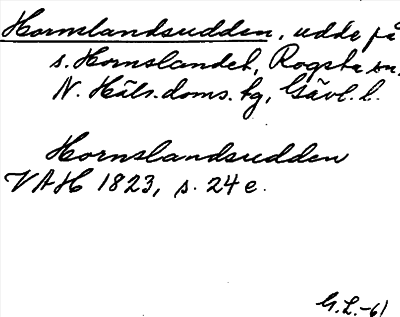 Hornslandsudden, udde på
s. Hornslandet, Rogsta sn,
N. Häls. doms. hg, Gävl. l.
Hornslandsudden
VAH 1823, s. 24 e.
G.L.-61